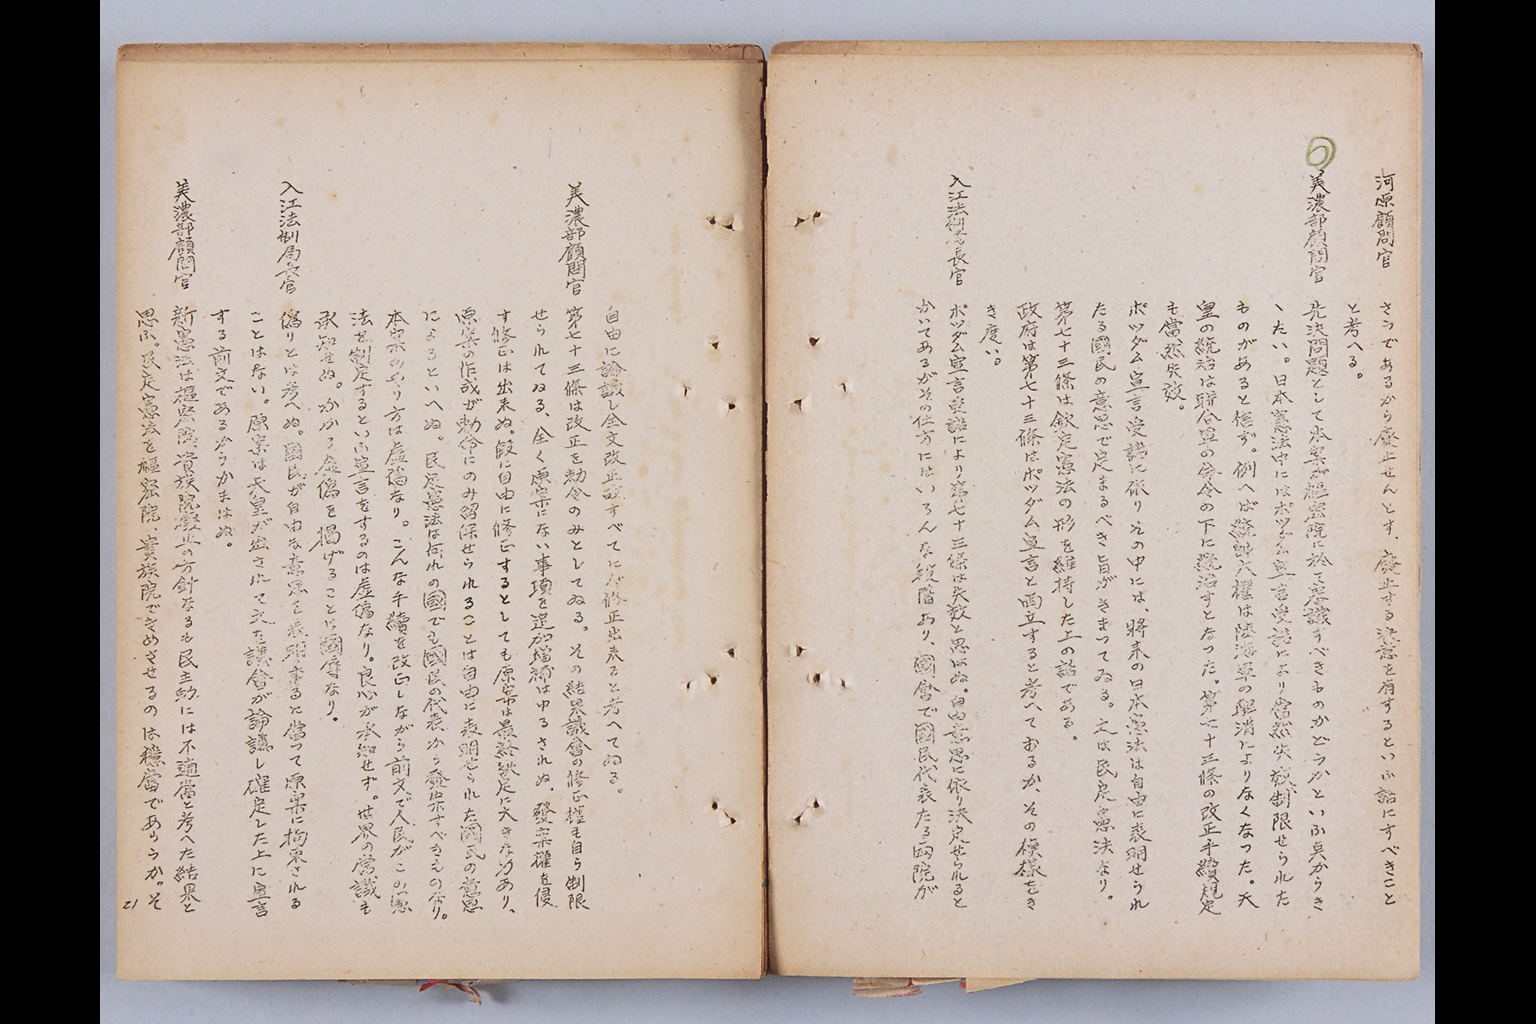 河原顧問官
さうであるから廃止せんとす、廃止する決意を有するといふ話にすべきこと
と考へる。
美濃部顧問官
先決問題として本案が樞密院に於て審議すべきものかどうかといふ点からき
ゝたい。日本憲法中にはポツダム宣言受諾により当然失効制限せられた
ものがあると信ず。例へば統帥大権は陸海軍の解消によりなくなった。天
皇の統治は聯合軍の命令の下に統治すとなった。第七十三條の改正手續規定
も當然失効。
ポツダム宣言受諾に依りその中には、將来の日本憲法は自由に表明せられ
たる國民の意思で定まるべき旨がきまってゐる。之は民定憲法なり。
第七十三條は欽定憲法の形を維持した上の話である。
政府は第七十三條はポツダム宣言と両立すると考へておるか、その模様をき
き度い。
入江法制局長官
ポツダム宣言受諾により第七十三條は失効と思はぬ。自由意思に依り決定せられると
かいてあるがその仕方にはいろんな段階あり、國會で國民代表たる両院が
自由に論議し全文改正すべてになる修正出来ると考へてゐる。
美濃部顧問官
第七十三條は改正を勅令のみとしてゐる。その結果議會の修正権も自ら制限
せられてゐる、全く原案にない事項を追加増補はゆるされぬ、發案權を侵
す修正は出来ぬ。假に自由に修正するとしても原案は最終決定に大きな力あり、
原案の作成が勅命にのみ留保せられることは自由に表明せられた國民の意思
によるといへぬ。民定憲法は何れの國でも國民の代表から發案すべきものなり。
本案のやり方は虚偽なり。こんな手續を改正しながら前文で人民がこの憲
法を制定するといふ宣言をするのは虚偽なり。良心が承知せず。世界の常識も
承知せぬ。かかる虚偽を掲げることは國辱なり。
入江法制局長官
偽りとは考へぬ。國民が自由な意思を表明するに當って原案に拘束される
ことはない。原案は天皇が出されて之を議會が論議し確定した上に宣言
する前文であるからかまはぬ。
美濃部顧問官
新憲法は樞密院、貴族院廢止の方針なるも民主的には不適當と考へた結果と
思ふ。民定憲法を樞密院、貴族院できめさせるのは穏當であらうか。そ
21